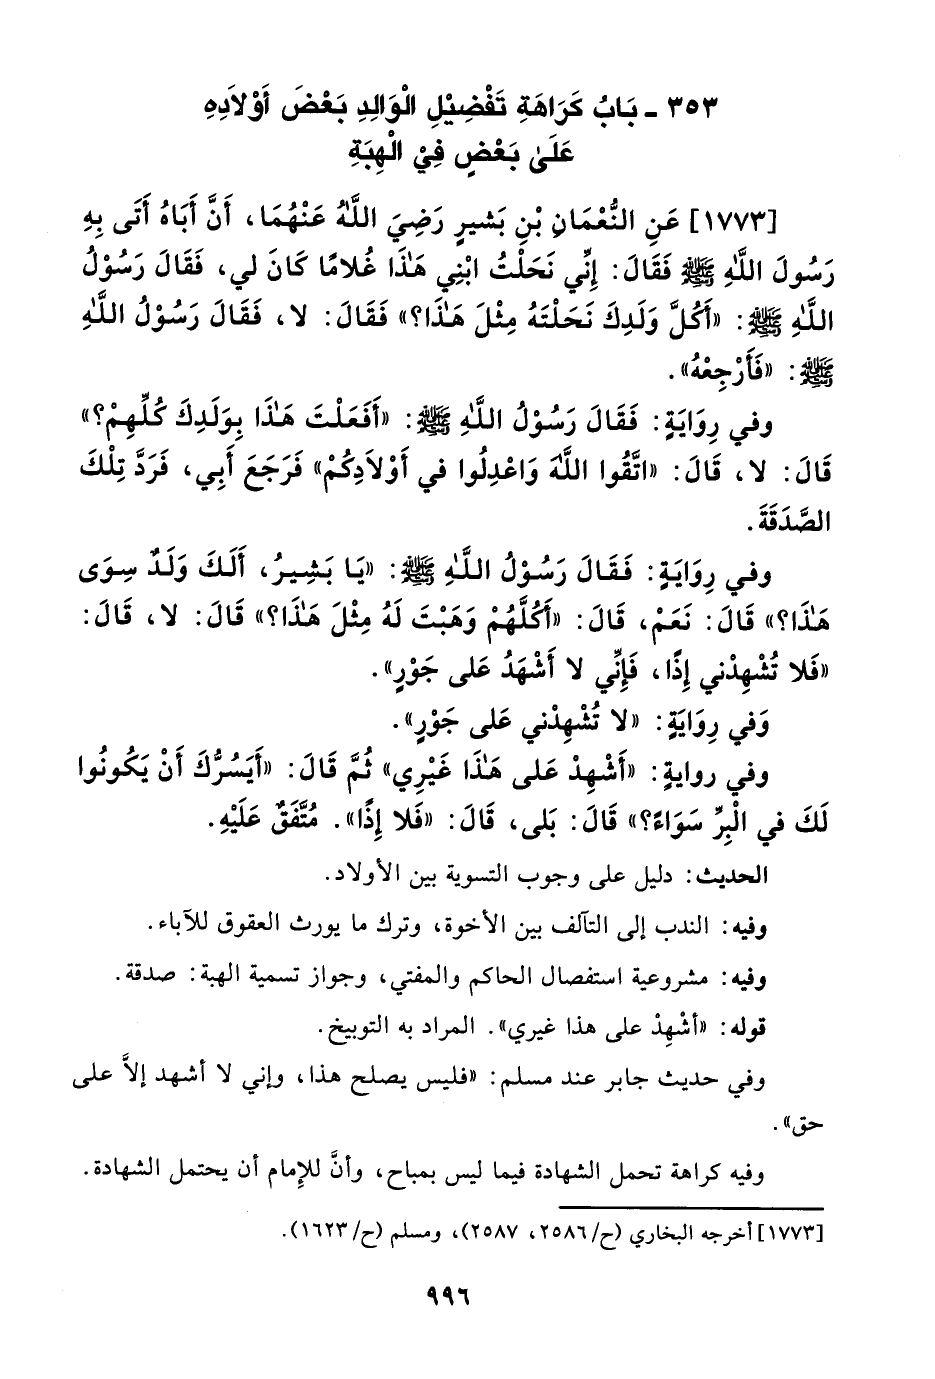 ٣٥٣ ـ بَابُ كَرَاهَةِ تَفْضِيْلِ الْوَالِدِ بَعْضَ أَوْلَادِهِ
عَلَىٰ بَعْضٍ فِيْ الْهِبَةِ
[١٧٧٣] عَنِ النُّعْمَانِ بْنِ بَشيرٍ رَضِيَ اللَّهُ عَنْهُمَا، أَنَّ أَبَاهُ أَتَى بِهِ
رَسُولَ اللَّهِ ﷺ فَقَالَ: إِنِّي نَحَلْتُ ابْنِي هَـٰذَا غُلامًا كَانَ لي، فَقَالَ رَسُوْلُ
اللَّهِ ﷺ: «أَكُلَّ وَلَدِكَ نَحَلْتَهُ مِثْلَ هَـٰذَا؟» فَقَالَ: لا، فَقَالَ رَسُوْلُ اللَّهِ
ﷺ: «فَأَرْجِعْهُ».
وفي رِوَايَةٍ: فَقَالَ رَسُوْلُ اللَّهِ ﷺ: «أَفَعَلْتَ هَـٰذَا بِوَلَدِكَ كُلِّهِمْ؟»
قَالَ: لا، قَالَ: «اتَّقُوا اللَّهَ وَاعْدِلُوا في أَوْلَادِكُمْ» فَرَجَعَ أَبِي، فَرَدَّ تِلْكَ
الصَّدَقَةَ.
وفي رِوَايَةٍ: فَقَالَ رَسُوْلُ اللَّهِ ﷺ: «يَا بَشِيرُ، أَلَكَ وَلَدٌ سِوَى
هَـٰذَا؟» قَالَ: نَعَمْ، قَالَ: «أَكُلَّهُمْ وَهَبْتَ لَهُ مِثْلَ هَـٰذَا؟» قَالَ: لا، قَالَ:
«فَلا تُشْهِدْني إِذًا، فَإِنِّي لا أَشْهَدُ عَلى جَوْرٍ».
وَفي رِوَايَةٍ: «لا تُشْهِدْني عَلى جَوْرٍ».
وفي روايةٍ: «أَشْهِدْ عَلى هَـٰذَا غَيْرِي» ثُمَّ قَالَ: «أَيَسُرُّكَ أَنْ يَكُونُوا
لَكَ في الْبِرِّ سَوَاءً؟» قَالَ: بَلى، قَالَ: «فَلا إِذًا». مُتَّفَقٌ عَلَيْهِ.
الحديث: دليل على وجوب التسوية بين الأولاد.
وفيه: الندب إلى التآلف بين الأخوة، وترك ما يورث العقوق للآباء.
وفيه: مشروعية استفصال الحاكم والمفتي، وجواز تسمية الهبة: صدقة.
قوله: «أشْهِدْ على هذا غيري». المراد به التوبيخ.
وفي حديث جابر عند مسلم: «فليس يصلح هذا، وإني لا أشهد إلاَّ على
حق».
وفيه كراهة تحمل الشهادة فيما ليس بمباح، وأنَّ للإِمام أن يحتمل الشهادة.
[١٧٧٣] أخرجه البخاري (ح/٢٥٨٦، ٢٥٨٧)، ومسلم (ح/١٦٢٣).
٩٩٦